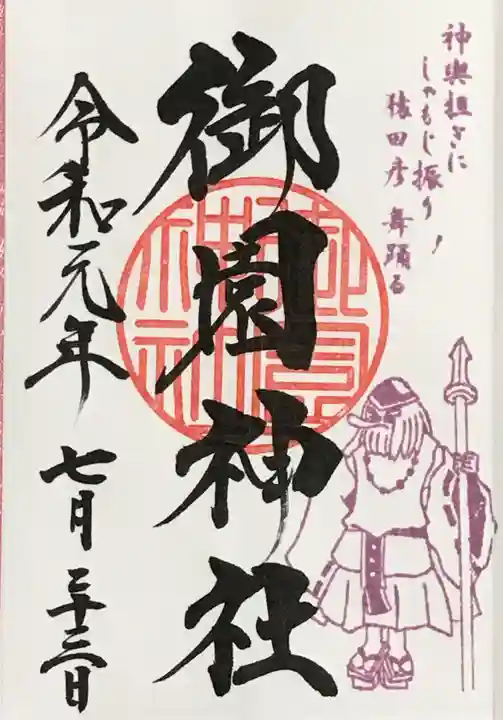 神輿担ぎに
しゃもじ振り！
猿田彦 舞踊る
御園神社
令和元年 七月二十三日